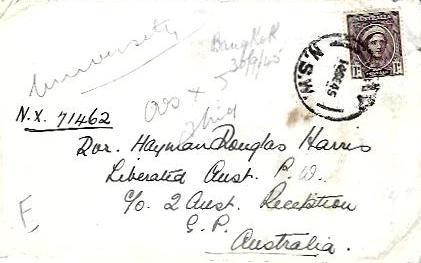 University
Bangkok
30/9/45
AUSTRALIA
N.S.W
N.X. 71462
Dvr. Hayman Douglas Harris
Liberated Aust. P.W.
C/o. 2 Aust. Reception
G.P.
Australia.
E